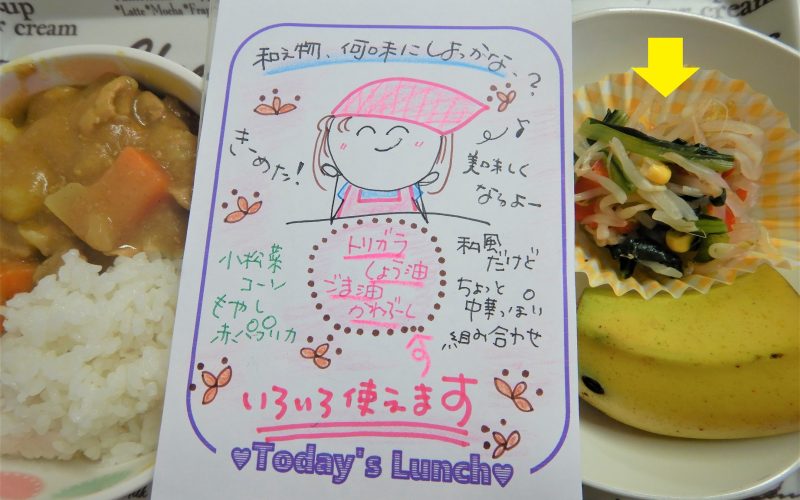 up
r cream
"Latte"Mocha"Frap
cream
和え物、何味にしよっかな、?
きーめた!
美味しく
なるよー
小松菜
コーン
もやし
赤パプリカ
トリガラ
しょう油
ごま油
かわぶーし
和風
だけど
ちょっと
中華っぽい
組み合わせ
いろいろ使えます
Today's Lunch